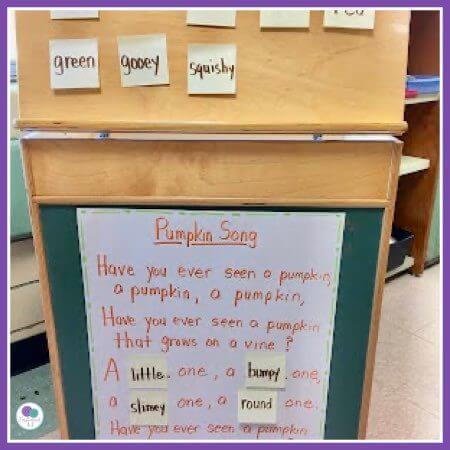 green gooey squishy
Pumpkin Song
Have you ever seen a pumpkin,
a pumpkin, a pumpkin,
Have you ever seen a pumpkin
that grows on a vine?
A little one, a bumpy one,
a slimey one, a round one.
Have you ever seen a pumpkin